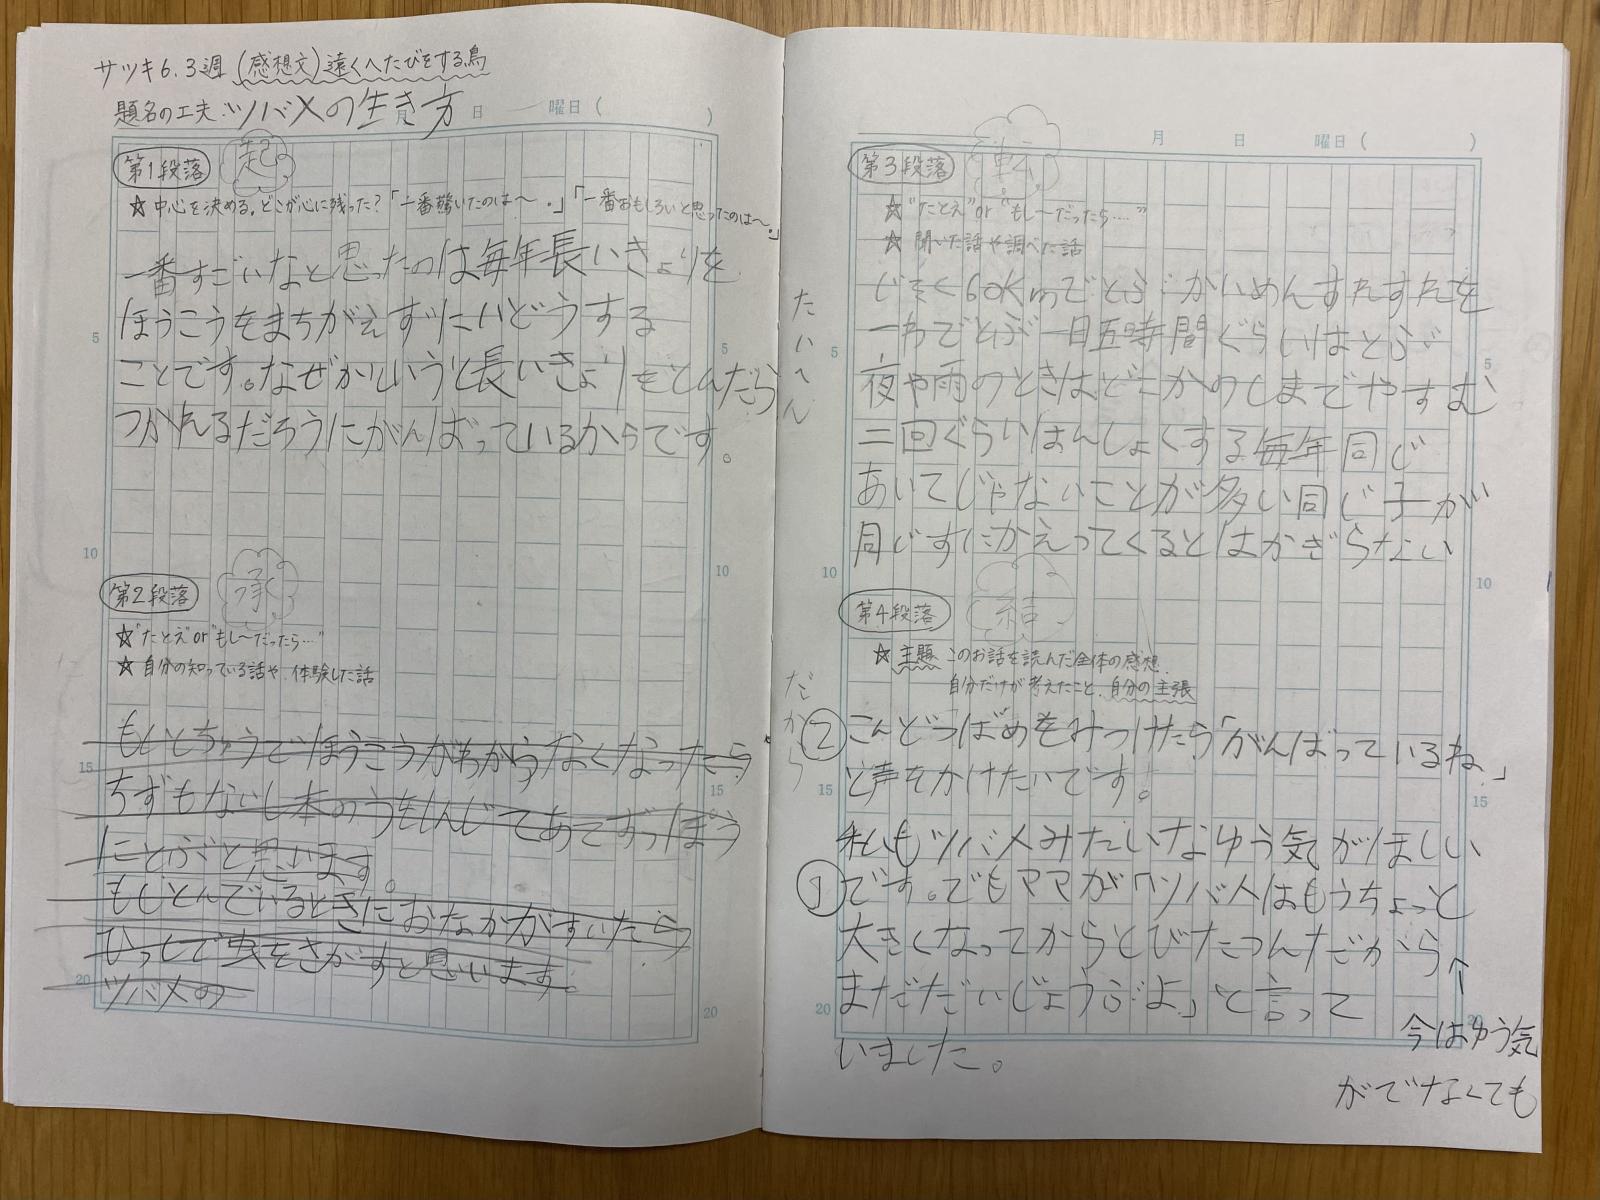 サツキ6.3週 (感想文)遠くへたびをする鳥
題名の工夫:ツバメの生き方
月 日 曜日( )
第1段落 起
☆ 中心を決める。どこが心に残った?「一番驚いたのは〜。」「一番おもしろいと思ったのは〜。」
一番すごいなと思ったのは毎年長いきょりを
ほうこうをまちがえずにいどうする
5 5
ことです。なぜかというと長いきょりをとんだら
つかれるだろうにがんばっているからです。
10 10
第2段落 承
☆"たとえ"or"もし〜だったら…"
☆ 自分の知っている話や、体験した話
もしとちゅうでほうこうがわからなくなったら
15 15
ちずもないし本のうをしんじてあてずっぽう
にとぶと思います。
もしとんでいるときにおなかがすいたら
ひっしで虫をさがすと思います。
20 20
ツバメの
たいへん
だから
月 日 曜日( )
第3段落 転
☆"たとえ"or"もし〜だったら…"
☆ 聞いた話や調べた話
じそく60Kmでとぶ かいめんすれすれを
一わでとぶ 一日五時間ぐらいはとぶ
5 5
夜や雨のときはどこかのしまでやすむ
二回ぐらいはんしょくする毎年同じ
あいてじゃないことが多い同じ子が
同じすにかえってくるとはかぎらない
10 10
第4段落 結
☆ 主題 このお話を読んだ全体の感想、
自分だけが考えたこと、自分の主張
② こんどつばめをみつけたら「がんばっているね」
と声をかけたいです。
15 15
私もツバメみたいなゆう気がほしい
① です。でもママが「ツバメはもうちょっと
大きくなってからとびたつんだから
まだだいじょうぶよ」と言って
20 20
いました。
↑
今はゆう気
がでなくても